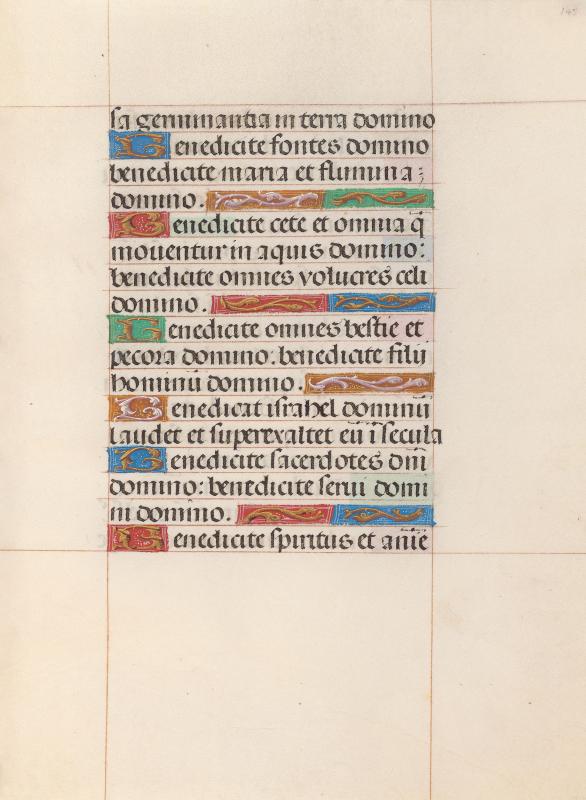 145
sa germinantia in terra domino
Benedicite fontes domino
benedicite maria et flumina;
domino.
Benedicite cete et omnia q̄
mouentur in aquis domino:
benedicite omnes volucres celi
domino.
Benedicite omnes bestie et
pecora domino. benedicite filii
hominū domino.
Benedicat israhel dominū
laudet et superexaltet eū ī secula
Benedicite sacerdotes dn̄i
domino: benedicite serui domi
ni domino.
Benedicite spiritus et anie